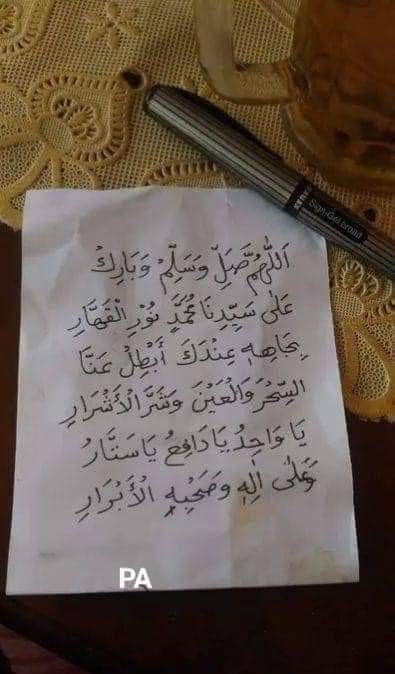 اَللّٰهُمَّ صَلِّ وَسَلِّمْ وَبَارِكْ
عَلٰى سَيِّدِنَا مُحَمَّدٍ نُوْرِ الْقَهَّارِ
بِجَاهِهٖ عِنْدَكَ أَبْطِلْ عَنَّا
السِّحْرَ وَالْعَيْنَ وَشَرَّ الْأَشْرَارِ
يَا وَاحِدُ يَا دَافِعُ يَا سَتَّارُ
وَعَلٰى اٰلِهٖ وَصَحْبِهٖ الْأَبْرَارِ
PA
Sign-Gel broad